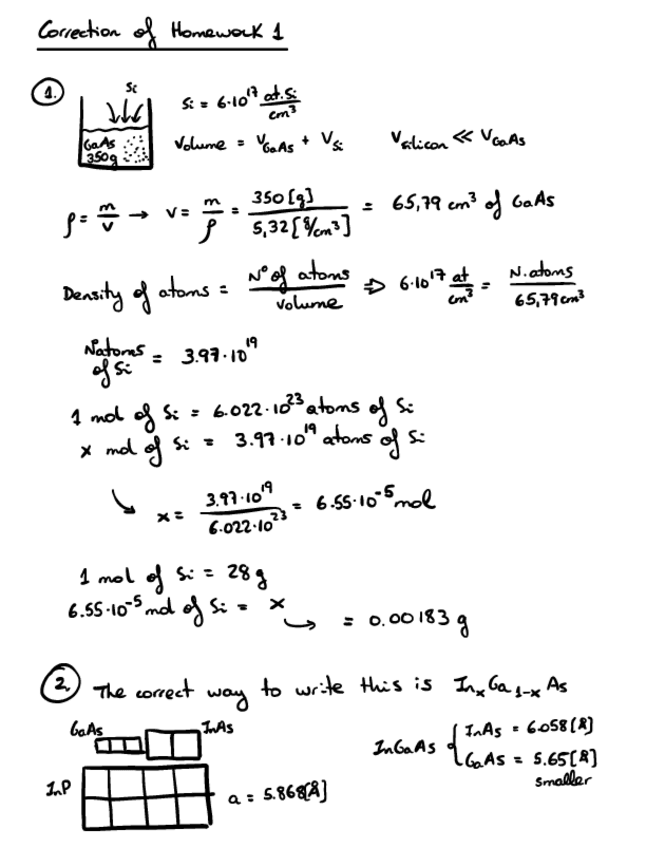 Correction of Homework 1
1. Si
GaAs
350g
Si = 6·10¹⁷ at.Si/cm³
Volume = V_GaAs + V_Si V_silicon << V_GaAs
ρ = m/v → v = m/ρ = 350[g]/5,32[g/cm³] = 65,79 cm³ of GaAs
Density of atoms = Nº of atoms/volume ⇒ 6·10¹⁷ at/cm³ = N.atoms/65,79cm³
Natoms of Si = 3.97·10¹⁹
1 mol of Si = 6.022·10²³ atoms of Si
x mol of Si = 3.97·10¹⁹ atoms of Si
↳ x = 3.97·10¹⁹/6.022·10²³ = 6.55·10⁻⁵ mol
1 mol of Si = 28 g
6.55·10⁻⁵ mol of Si = x
↳ = 0.00183 g
2. The correct way to write this is InₓGa₁₋ₓAs
GaAs InAs
InP
a = 5.868[Å]
InGaAs { InAs = 6.058[Å]
GaAs = 5.65[Å]
smaller